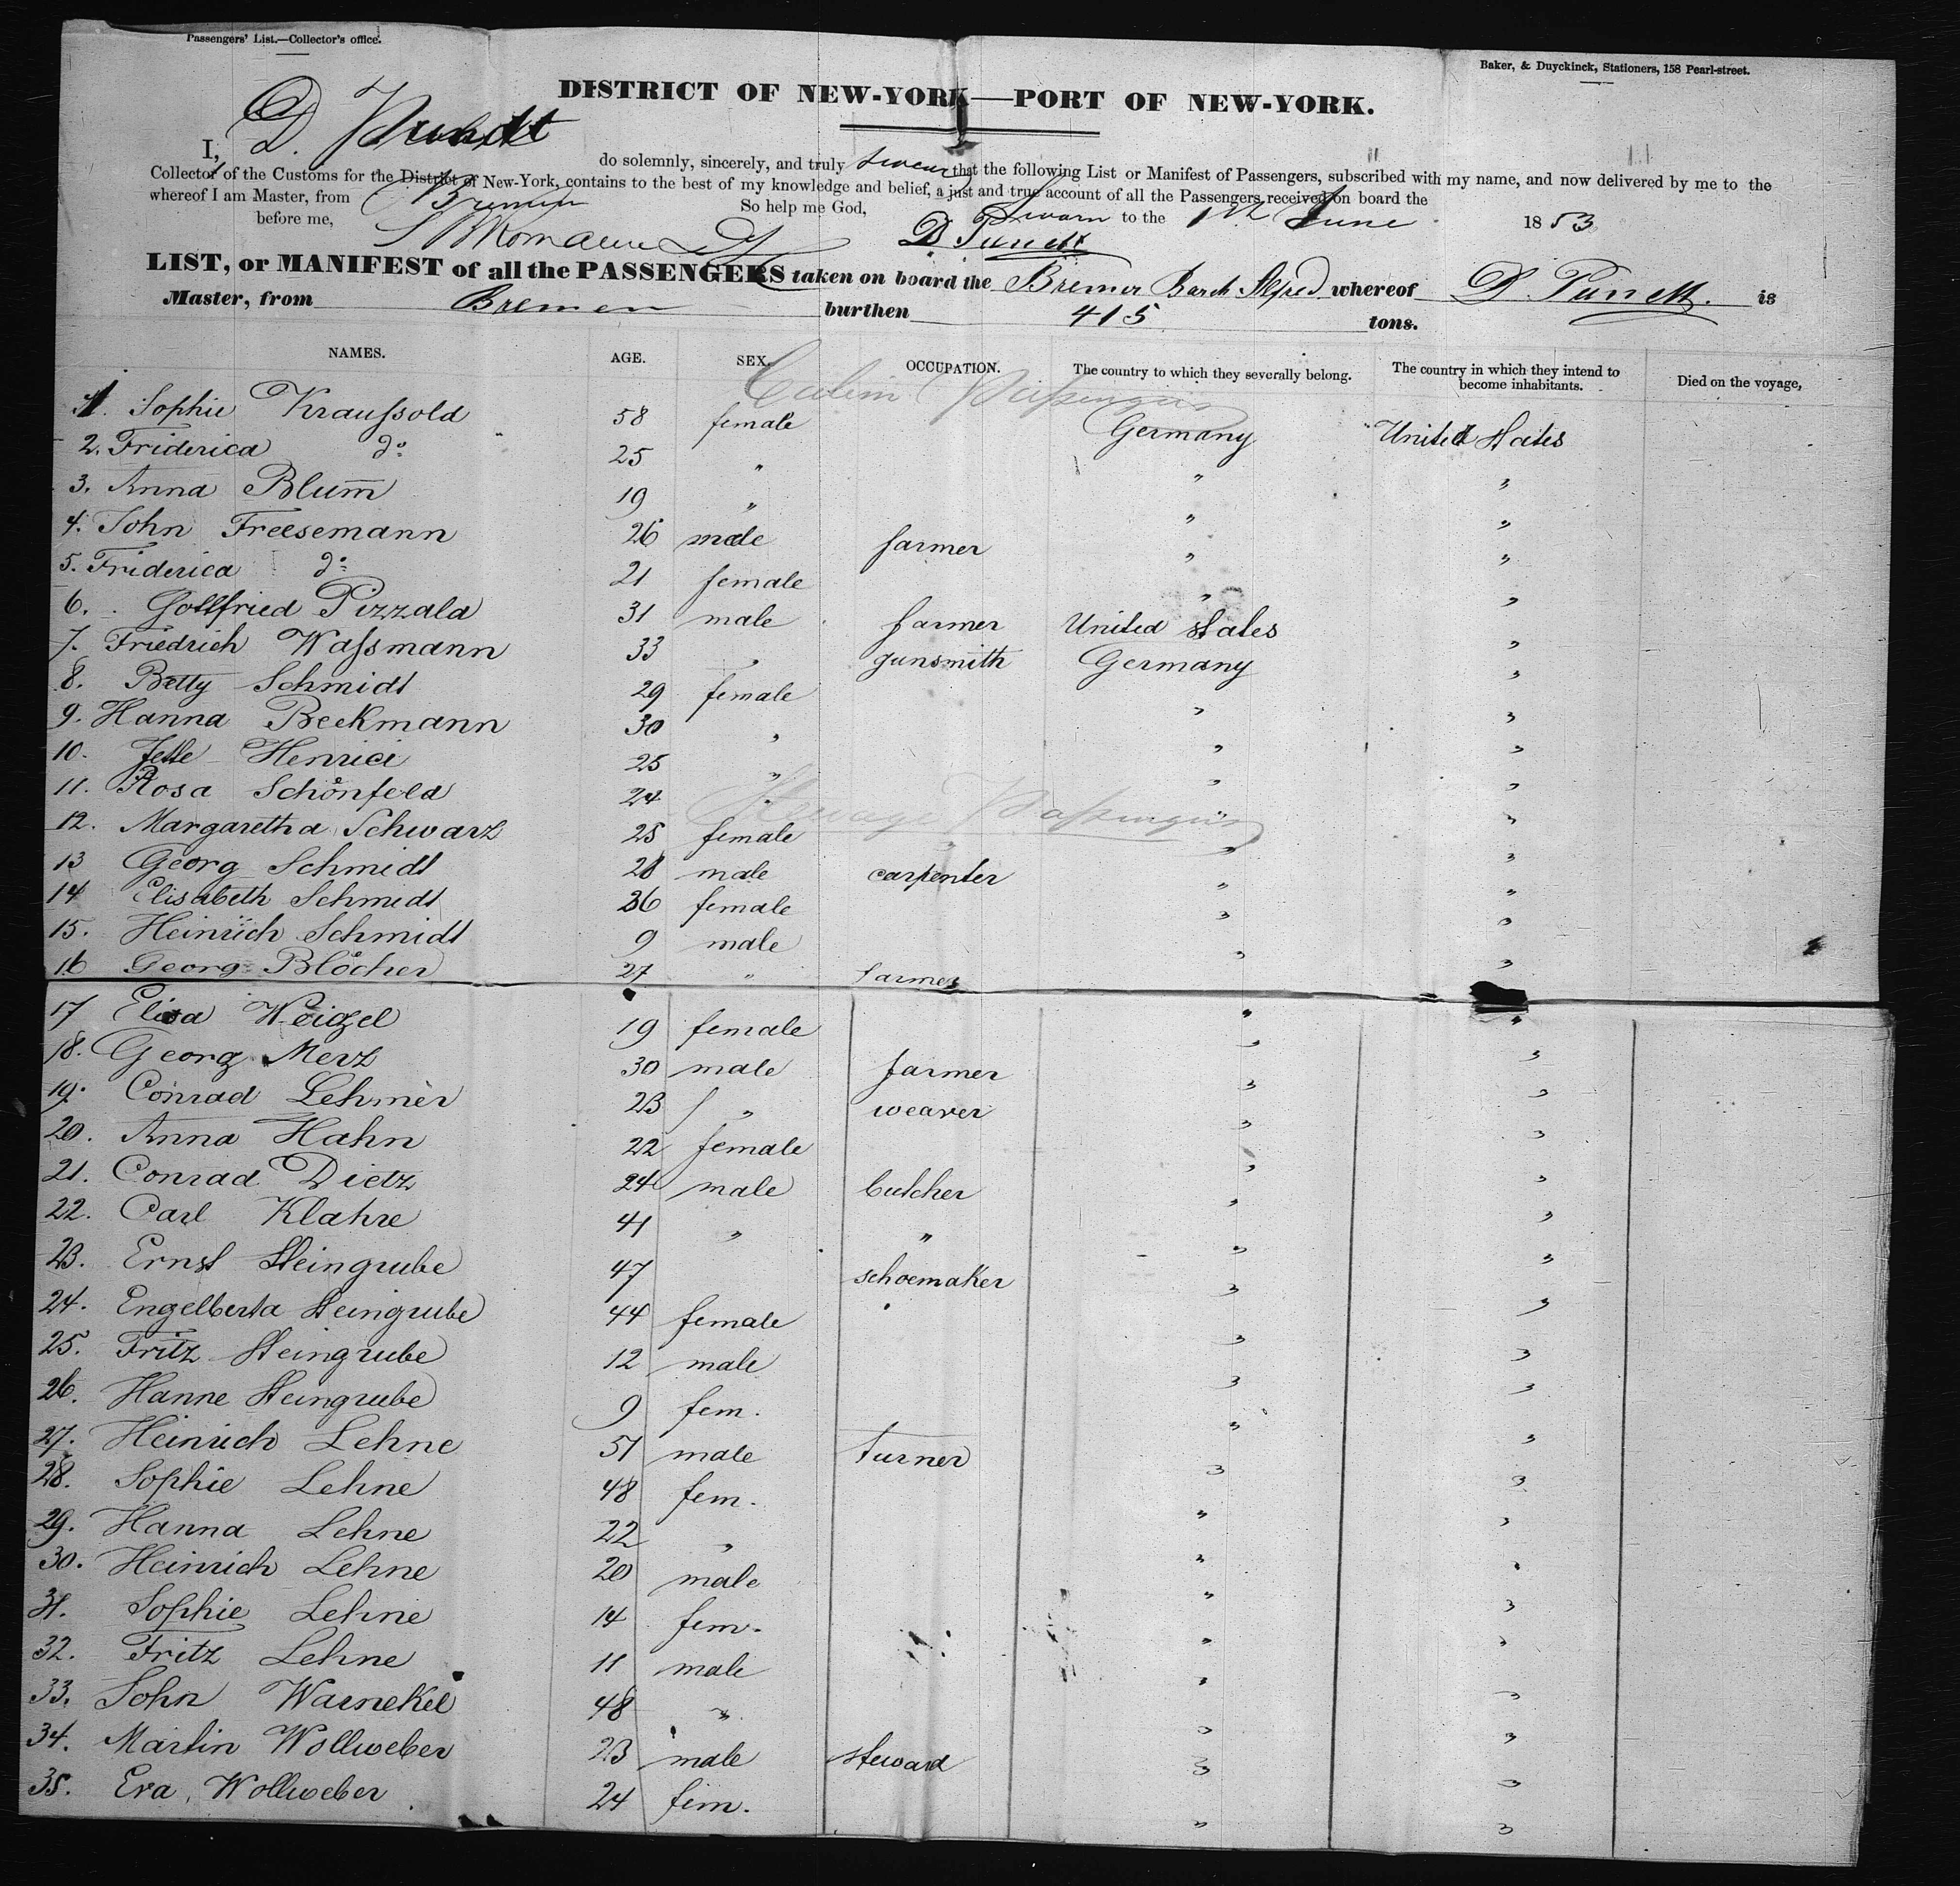 Passengers' List.—Collector's office.
Baker, & Duyckinck, Stationers, 158 Pearl-street.
DISTRICT OF NEW-YORK—PORT OF NEW-YORK.
I, D. do solemnly, sincerely, and truly swear that the following List or Manifest of Passengers, subscribed with my name, and now delivered by me to the
Collector of the Customs for the District of New-York, contains to the best of my knowledge and belief, a just and true account of all the Passengers received on board the
whereof I am Master, from Bremen So help me God, Sworn to the June 1853
before me, D.
LIST, or MANIFEST of all the PASSENGERS taken on board the Bremer Bark Alfred whereof D. is
Master, from Bremen burthen 415 tons.
NAMES. AGE. SEX. OCCUPATION. The country to which they severally belong. The country in which they intend to become inhabitants. Died on the voyage,
Passengers
1. Sophie Kraußold 58 female Germany United States
2. Friderica do 25 " " "
3. Anna Blum̅ 19 " " "
4. John Freesemann 26 male farmer " "
5. Friderica do 21 female " "
6. Gottfried Pizzala 31 male farmer United states "
7. Friedrich Waßmann 33 " gunsmith Germany "
8. Betty Schmidt 29 female " "
9. Hanna Beekmann 30 " " "
10. Jette Henrici 25 " " "
11. Rosa Schönfeld 24 " " "
Steerage Passengers
12. Margaretha Schwarz 25 female " "
13 Georg Schmidt 28 male carpenter " "
14 Elisabeth Schmidt 26 female " "
15. Heinrich Schmidt 9 male " "
16 Georg Blöcher 27 " farmer " "
17 Elisa Weigel 19 female " "
18. Georg Merz 30 male farmer " "
19. Conrad Lehmer 23 " weaver " "
20. Anna Hahn 22 female " "
21. Conrad Dietz 24 male butcher " "
22. Carl Klahre 41 " " " "
23. Ernst Steingrube 47 schoemaker " "
24. Engelberta Steingrube 44 female " "
25. Fritz Steingrube 12 male " "
26. Hanne Steingrube 9 fem. " "
27. Heinrich Lehne 51 male turner " "
28. Sophie Lehne 48 fem. " "
29. Hanna Lehne 22 " " "
30. Heinrich Lehne 20 male " "
31. Sophie Lehne 14 fem. " "
32. Fritz Lehne 11 male " "
33. John Warnekel 48 " " "
34. Martin Wollweber 23 male steward " "
35. Eva Wollweber 24 fem. " "